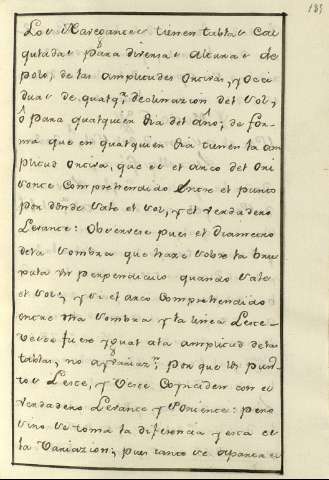 189
Los Mareantes tienen tablas Cal
culadas pª diversas alturas de
polo, de las amplitudes Ortivas, y Occi
duas de qualqr. declinacion del sol,
ô para qualquier dia del año; de for
ma que en qualquier dia tienen la am
plitud Ortiva, que es el arco del Ori
zonte Comprehendido Entre el punto
por donde sale el sol, y el verdadero
Levante: Observese pues el Diametro
dela sombra que haze sobre la bru
jula su perpendiculo quando sale
el sol, y si el arco Comprehendido
entre dha sombra y la linea Leste
Oeste fuere ygual ala amplitud delas
tablas, no ay variazn. por que los pun
tos Leste, y Oeste Coynciden con el
verdadero Levante y Poniente: pero
sino se toma la diferencia y esta es
la Variazion; pues tanto se aparta el